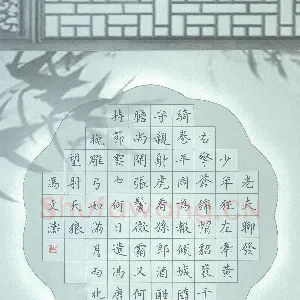 老夫聊發
少年狂左牽黃
右擎蒼錦帽貂裘千
騎卷平岡為報傾城隨
守親射虎看孫郎酒酣
膽尚開張鬢微霜又何
持節雲中何日遣馮唐
挽雕弓如滿月西北
望射天狼
文濤